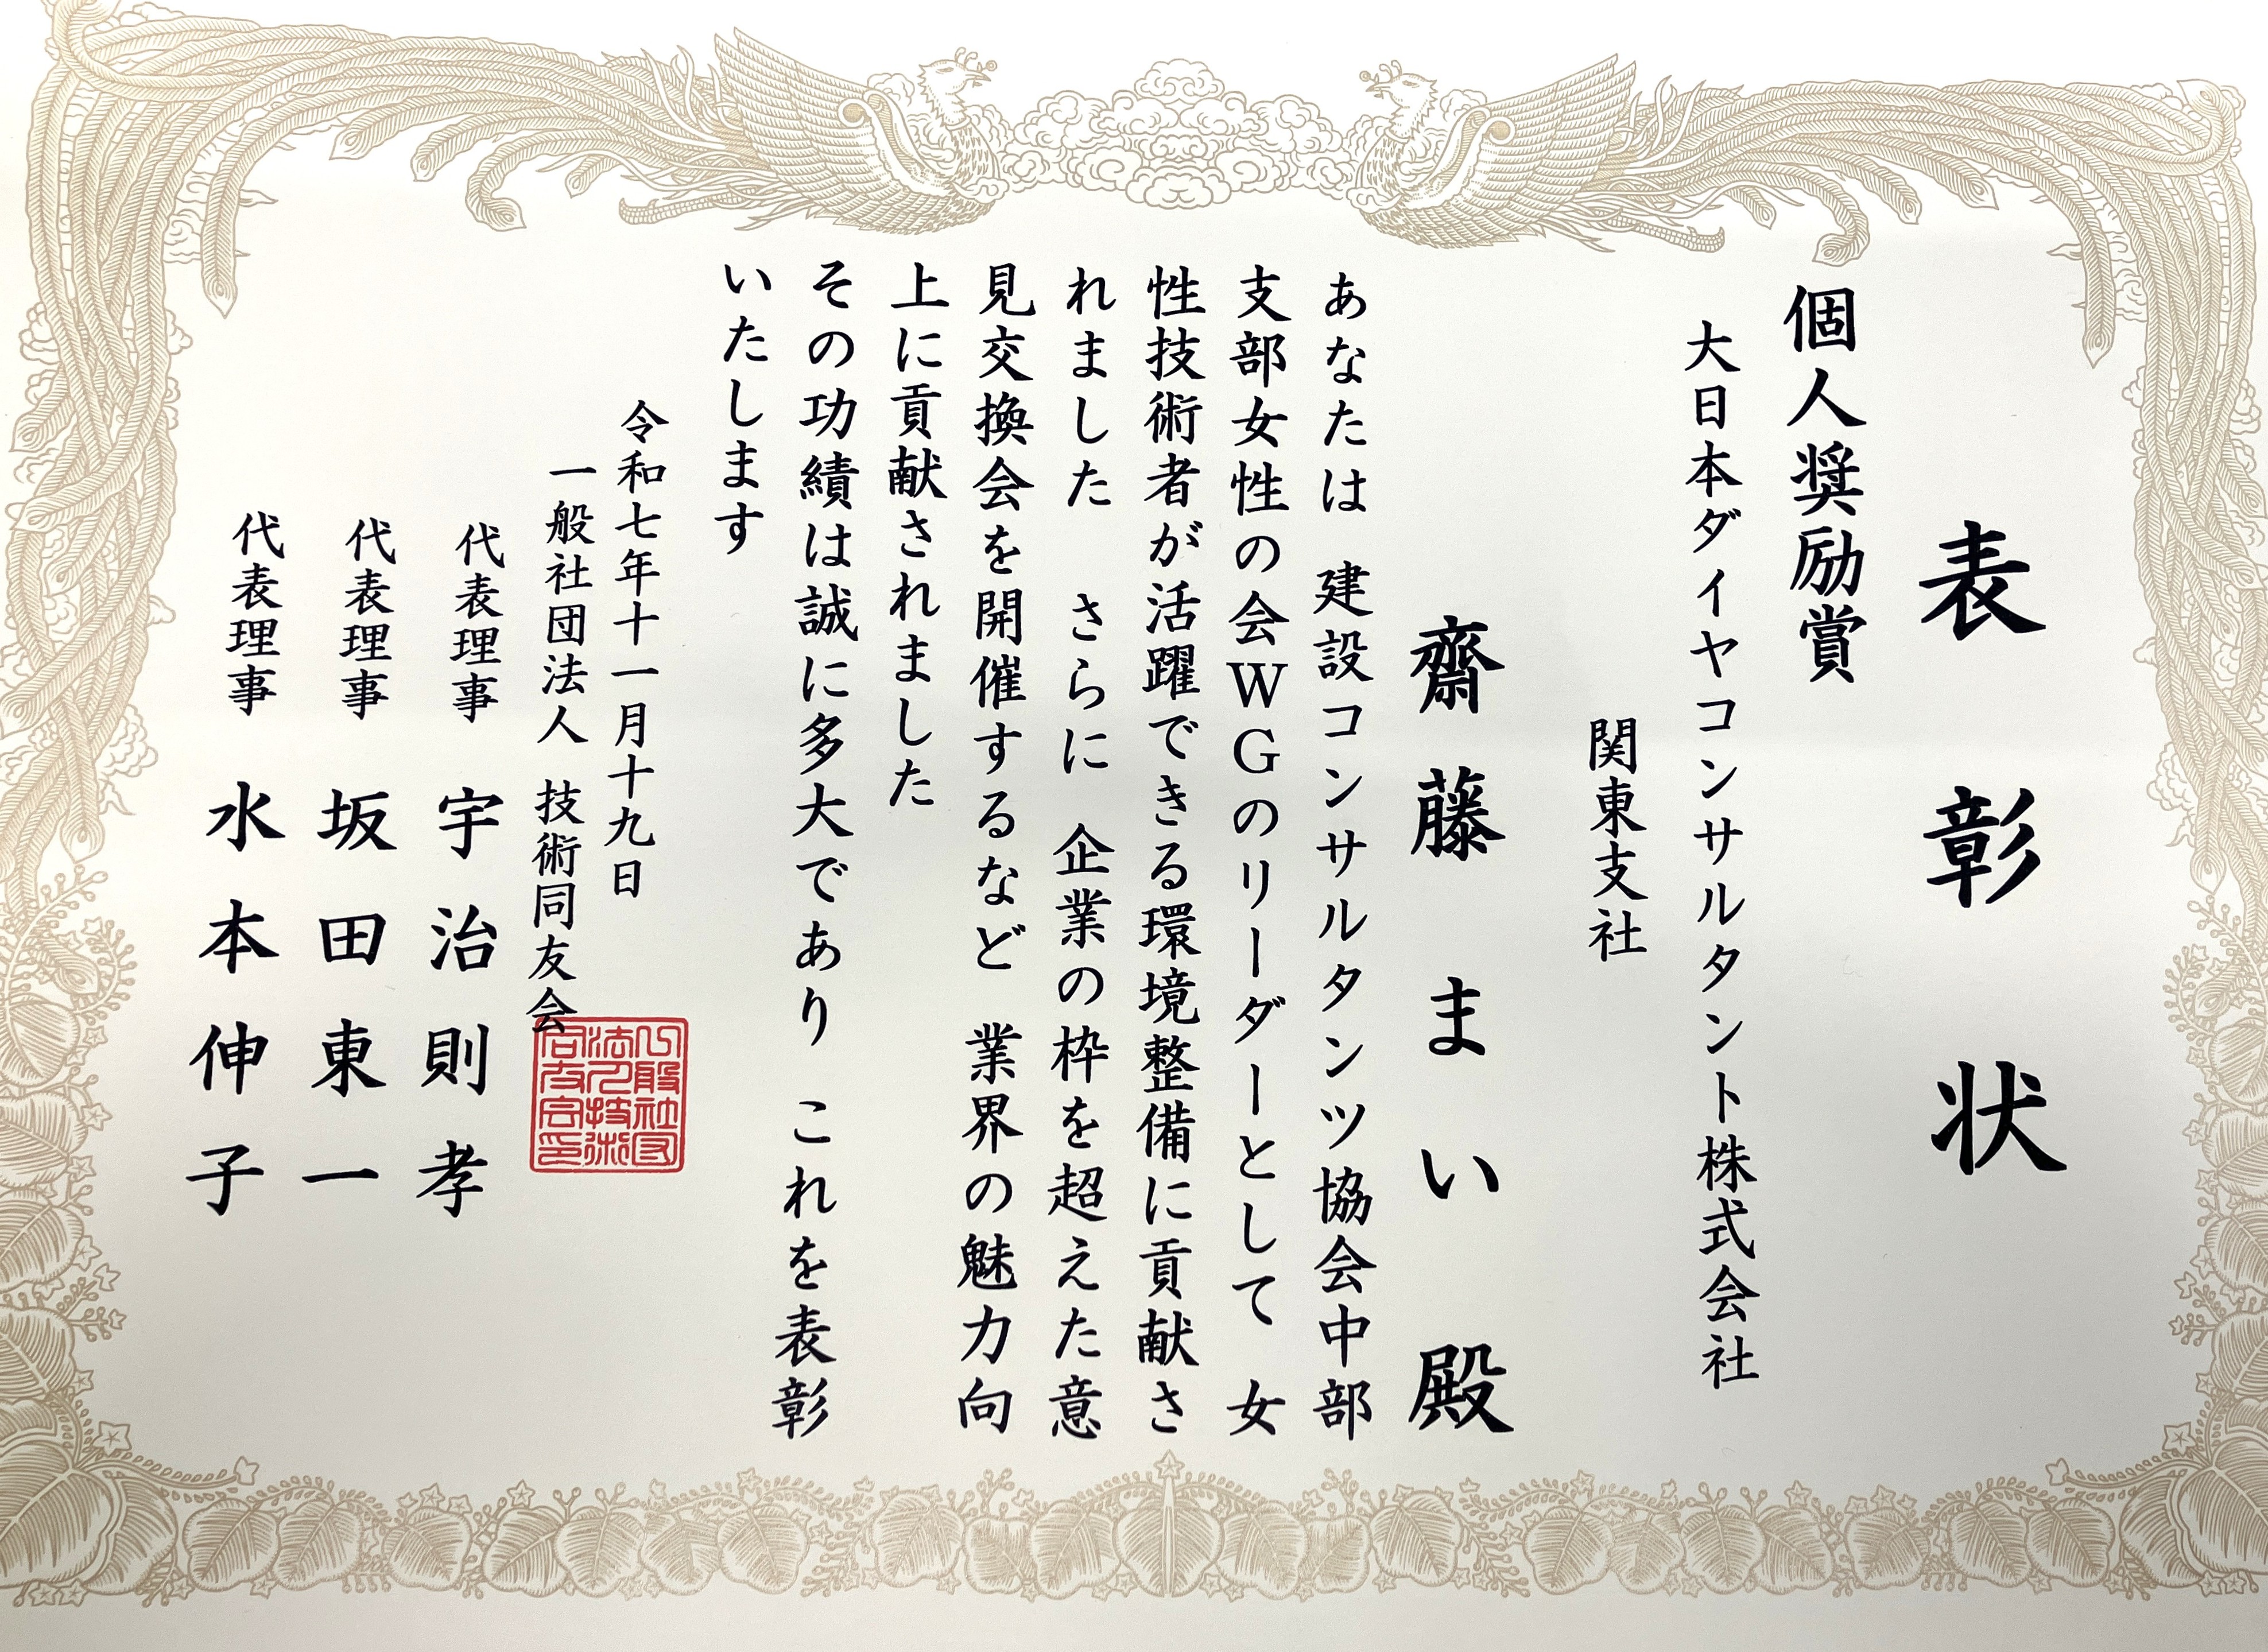 表彰状
個人奨励賞
大日本ダイヤコンサルタント株式会社
関東支社
齋藤まい殿
あなたは　建設コンサルタンツ協会中部
支部女性の会WGのリーダーとして　女
性技術者が活躍できる環境整備に貢献さ
れました　さらに　企業の枠を超えた意
見交換会を開催するなど　業界の魅力向
上に貢献されました
その功績は誠に多大であり　これを表彰
いたします
令和七年十一月十九日
一般社団法人　技術同友会
代表理事　宇治則孝
代表理事　坂田東一
代表理事　水本伸子
一般社団
法人技術
同友会印